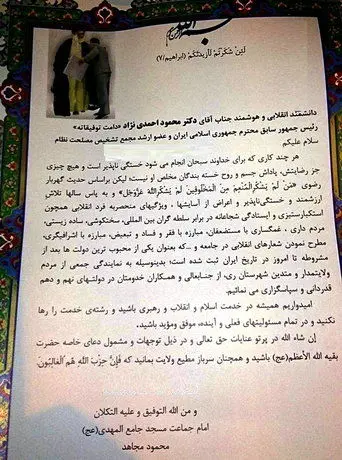 بسم الله
لَئِنْ شَكَرْتُمْ لَأَزِيدَنَّكُمْ (ابراهیم/۷)
دانشمند انقلابی و هوشمند جناب آقای دکتر محمود احمدی نژاد «دامت توفیقاته»
رئیس جمهور سابق محترم جمهوری اسلامی ایران و عضو ارشد مجمع تشخیص مصلحت نظام
سلام علیکم
هر چند کاری که برای خداوند سبحان انجام می شود خستگی ناپذیر است و هیچ چیزی
جز رضایتش، پاداش جسم و روح خسته بندگان مخلص او نیست؛ لیکن براساس حدیث گهربار
رضوی «مَنْ لَمْ يَشْكُرِ الْمُنْعِمَ مِنَ الْمَخْلُوقِينَ لَمْ يَشْكُرِ اللَّهَ عَزَّوَجَلَّ» و به پاس سالها تلاش
ارزشمند و خستگی‌ناپذیر و اعراض از آسایشها ، ویژگیهای منحصربه فرد انقلابی همچون
استکبارستیزی و ایستادگی شجاعانه در برابر سلطه گران بین المللی، سختکوشی، ساده زیستی،
مردم داری ، غمگساری با مستضعفان، مبارزه با فقر و فساد و تبعیض، مبارزه با اشرافیگری،
مطرح نمودن شعارهای انقلابی در جامعه و ...که بعنوان یکی از محبوب ترین دولت ها بعد از
مشروطه تا امروز در تاریخ ایران ثبت شده است؛ بدینوسیله به نمایندگی جمعی از مردم
ولایتمدار و متدین شهرستان ری، از جنابعالی و همکاران خدومتان در دولتهای نهم و دهم
قدردانی و سپاسگزاری می نمائیم.
امیدواریم همیشه در خدمت اسلام و انقلاب و رهبری باشید و رشته‌ی خدمت را رها
نکنید و در تمام مسئولیتهای فعلی و آینده، موفق ومؤید باشید.
إن شاء الله در پرتو عنایات حق تعالی و در ذیل توجهات و مشمول دعای خاصه حضرت
بقیه الله الأعظم(عج) باشید و همچنان سرباز مطیع ولایت بمانید که فَإِنَّ حِزْبَ اللَّهِ هُمُ الْغَالِبُونَ.
و من الله التوفیق و علیه التکلان
امام جماعت مسجد جامع المهدی(عج)
محمود مجاهد